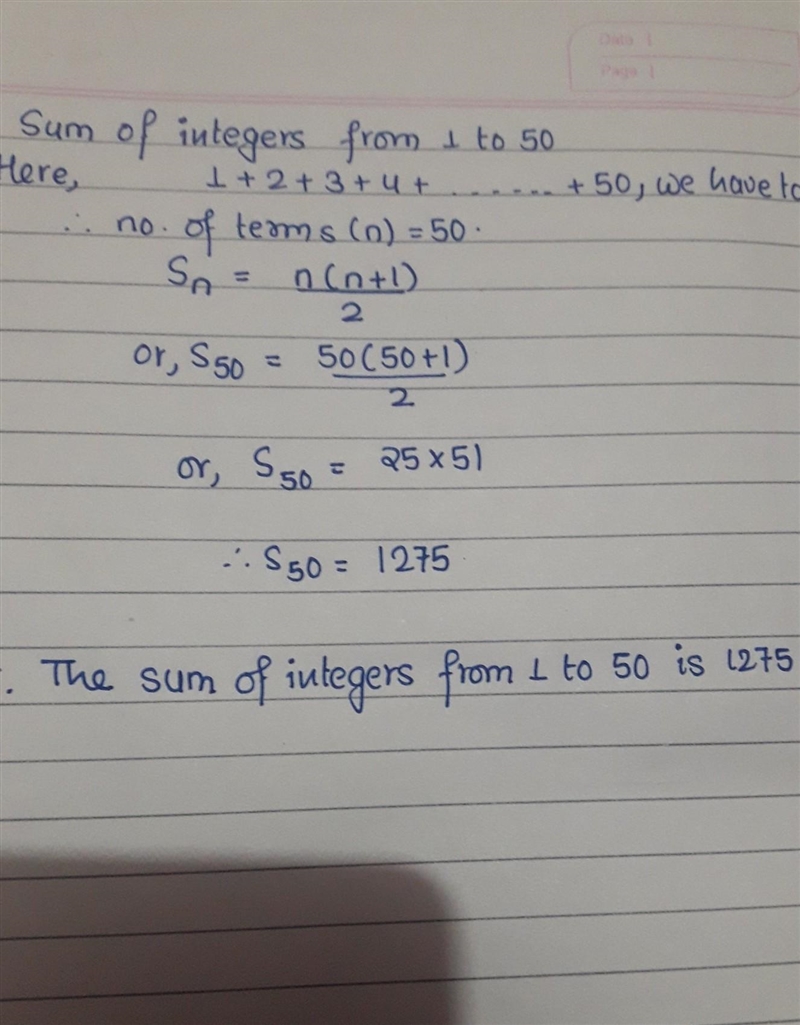 Date |
Page |
Sum of integers from 1 to 50
Here, 1 + 2 + 3 + 4 + ....... + 50, we have to
∴ no. of terms (n) = 50.
Sn = n(n+1)
2
or, S50 = 50(50+1)
2
or, S50 = 25 × 51
∴ S50 = 1275
. The sum of integers from 1 to 50 is 1275